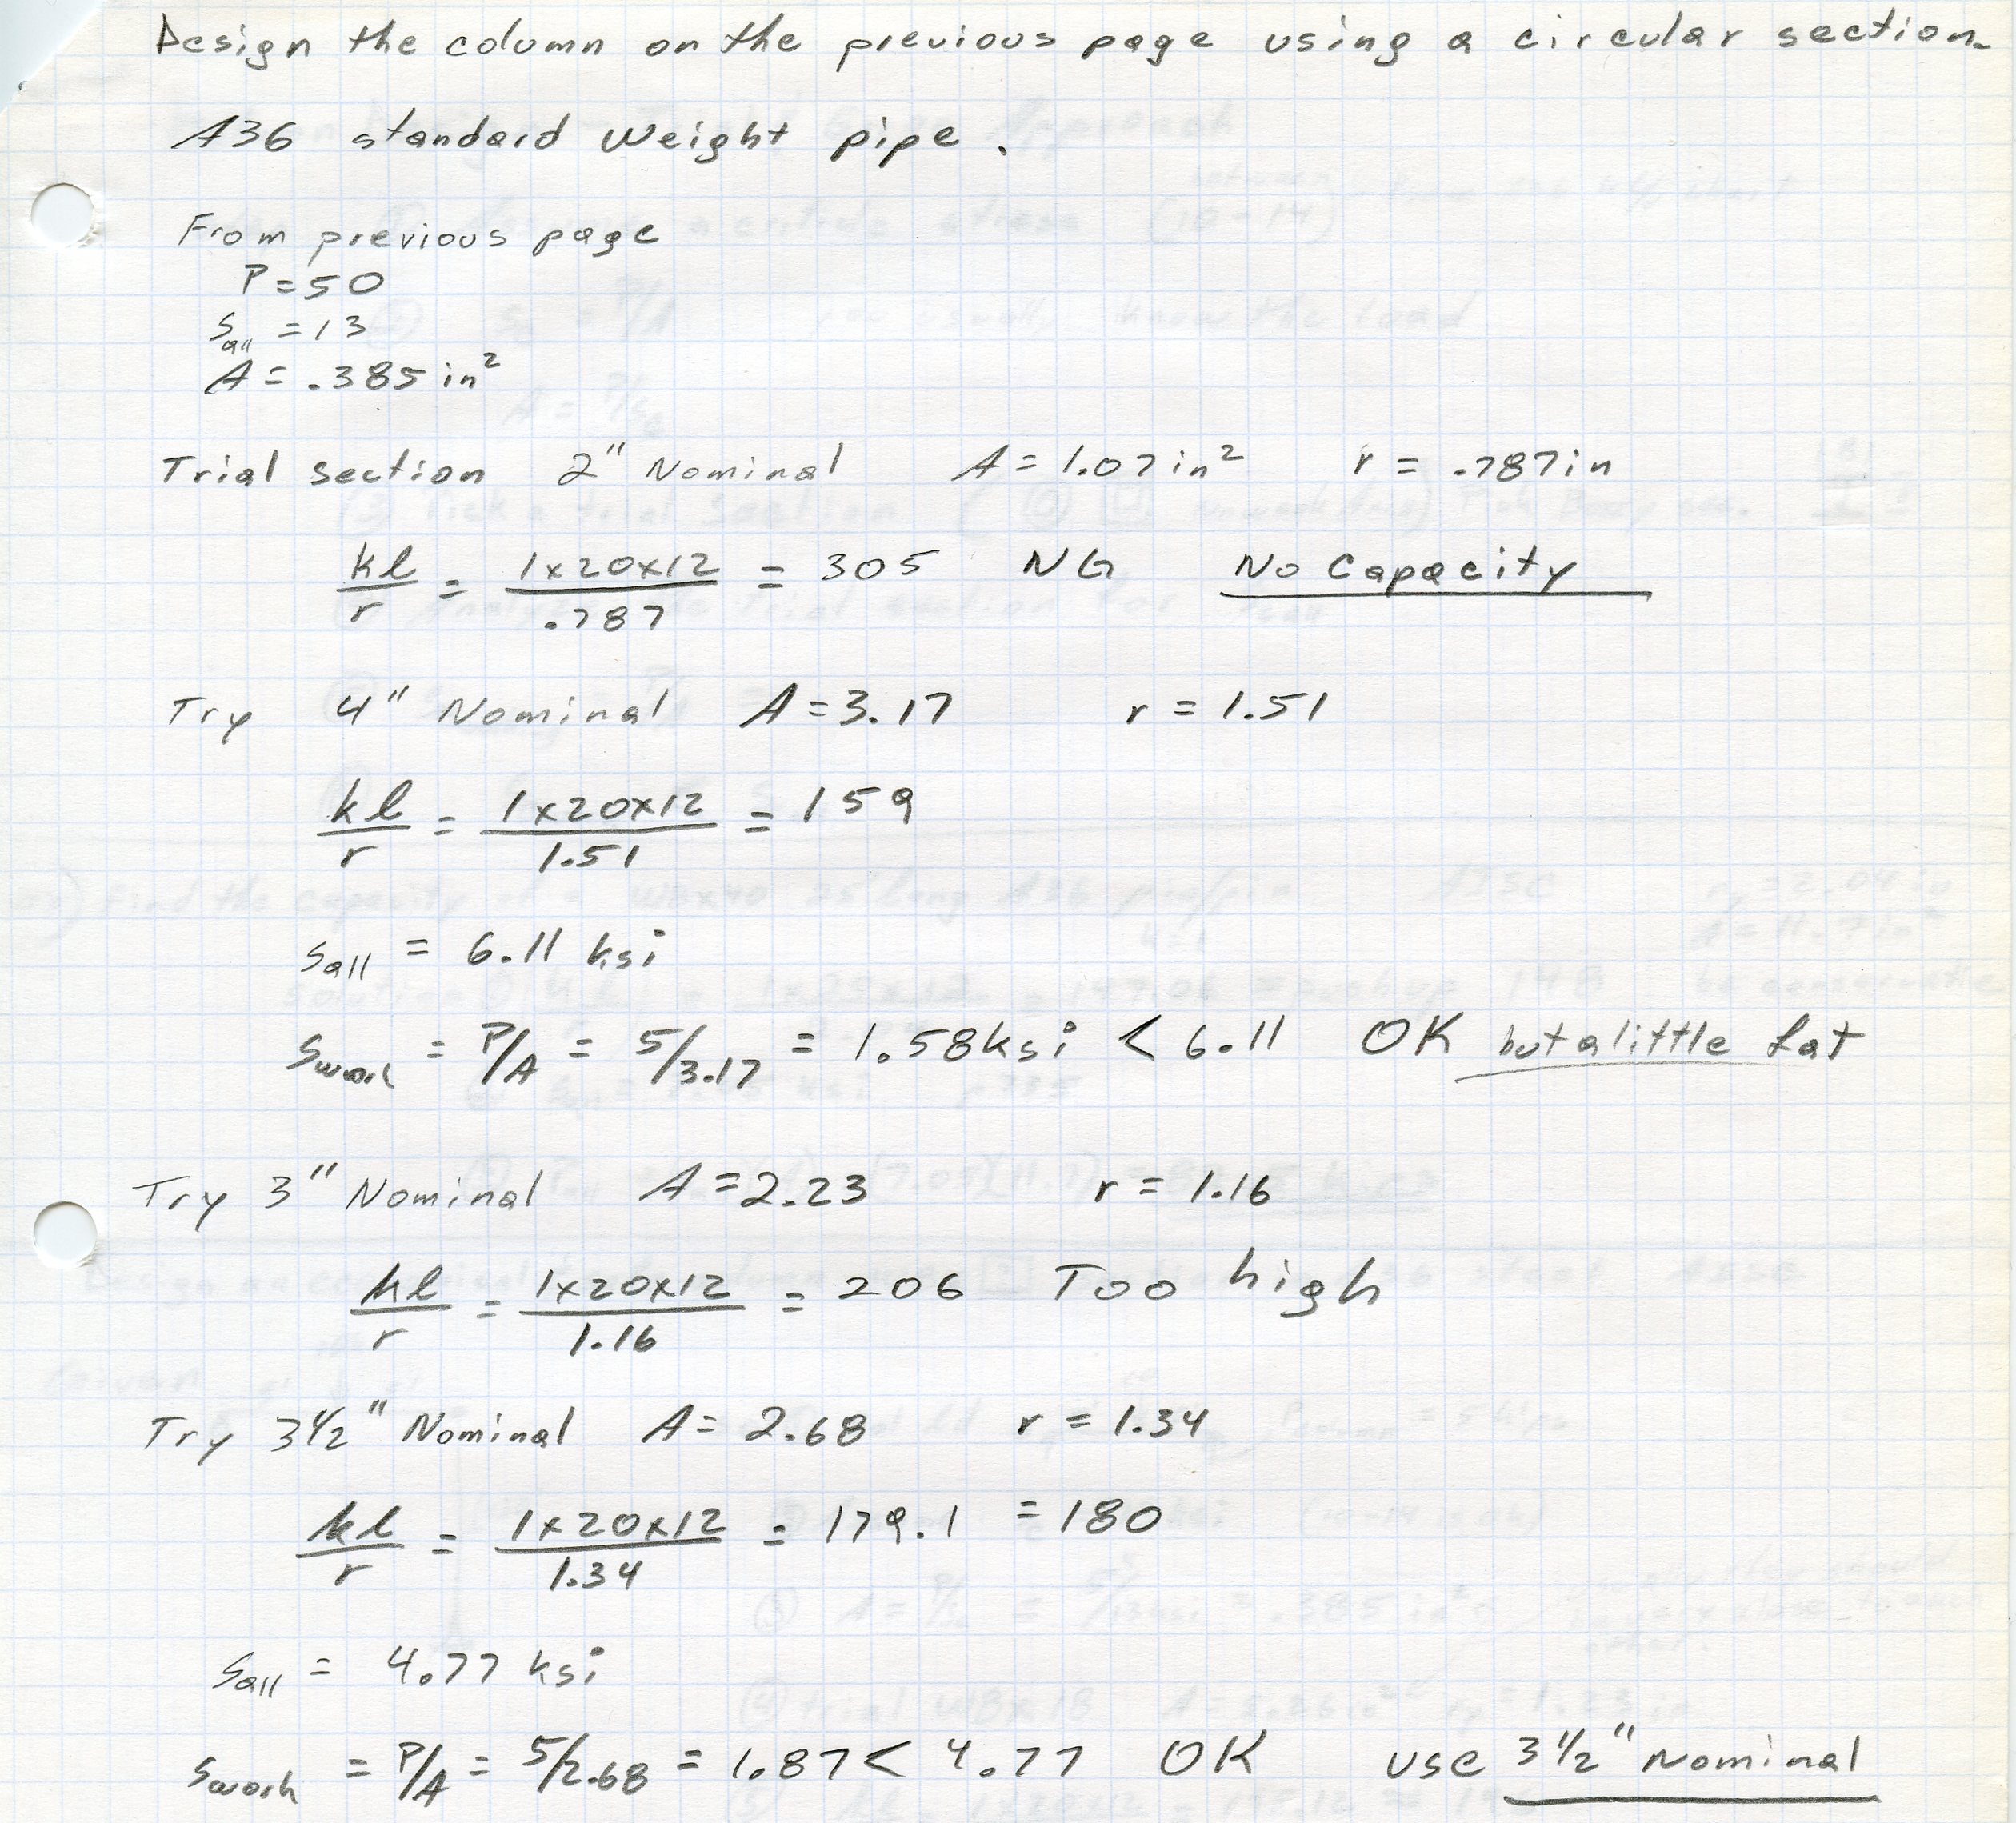 Design the column on the previous page using a circular section.
A36 standard weight pipe.
From previous page
P = 50
Sall = 13
A = .385 in²
Trial section 2" Nominal A = 1.07 in² r = .787 in
kl/r = 1x20x12/.787 = 305 NG No Capacity
Try 4" Nominal A = 3.17 r = 1.51
kl/r = 1x20x12/1.51 = 159
Sall = 6.11 ksi
Swork = P/A = 5/3.17 = 1.58 ksi < 6.11 OK but a little fat
Try 3" Nominal A = 2.23 r = 1.16
kl/r = 1x20x12/1.16 = 206 Too high
Try 3½" Nominal A = 2.68 r = 1.34
kl/r = 1x20x12/1.34 = 179.1 = 180
Sall = 4.77 ksi
Swork = P/A = 5/2.68 = 1.87 < 4.77 OK use 3½" Nominal